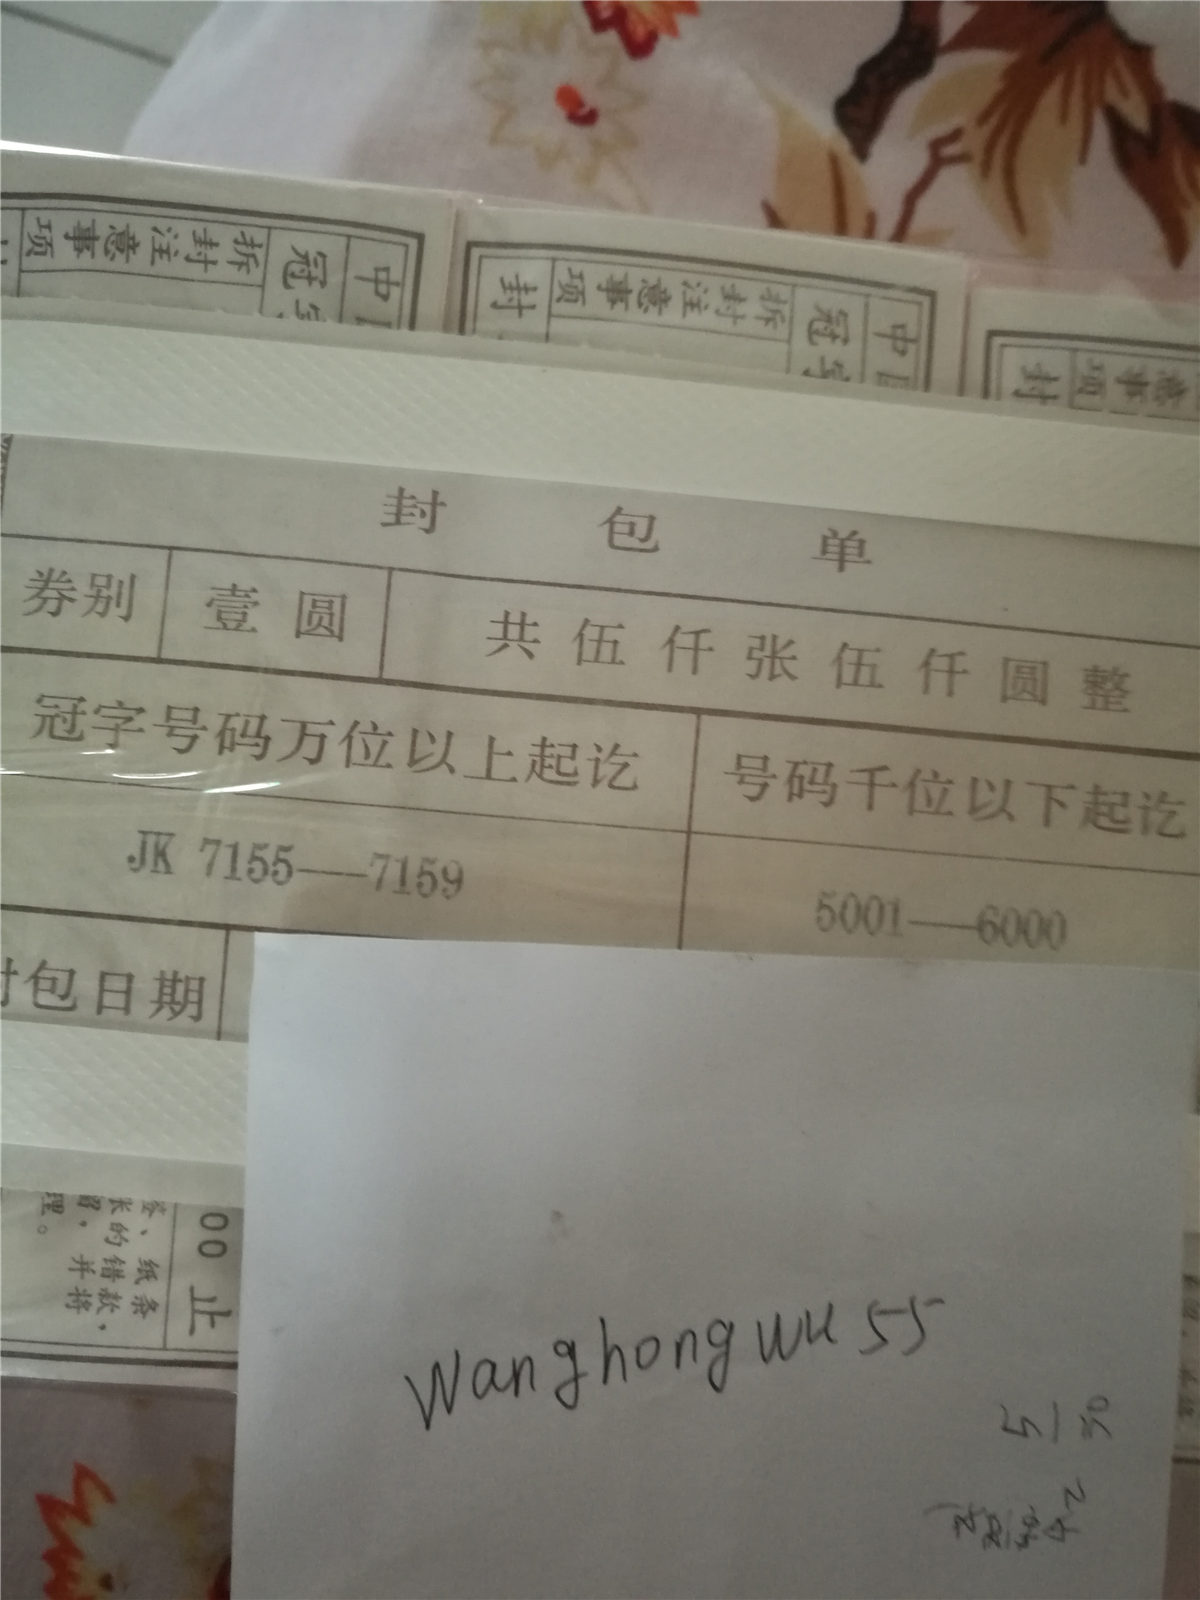 中
冠字
拆封注意事项
中
冠字
拆封注意事项
封
意事项
封
封包单
券别 壹圆 共伍仟张伍仟圆整
冠字号码万位以上起讫 号码千位以下起讫
JK 7155—7159 5001—6000
封包日期
00止
签、纸条
张的错款，
留，并将
理。
Wanghongwu55
5—50